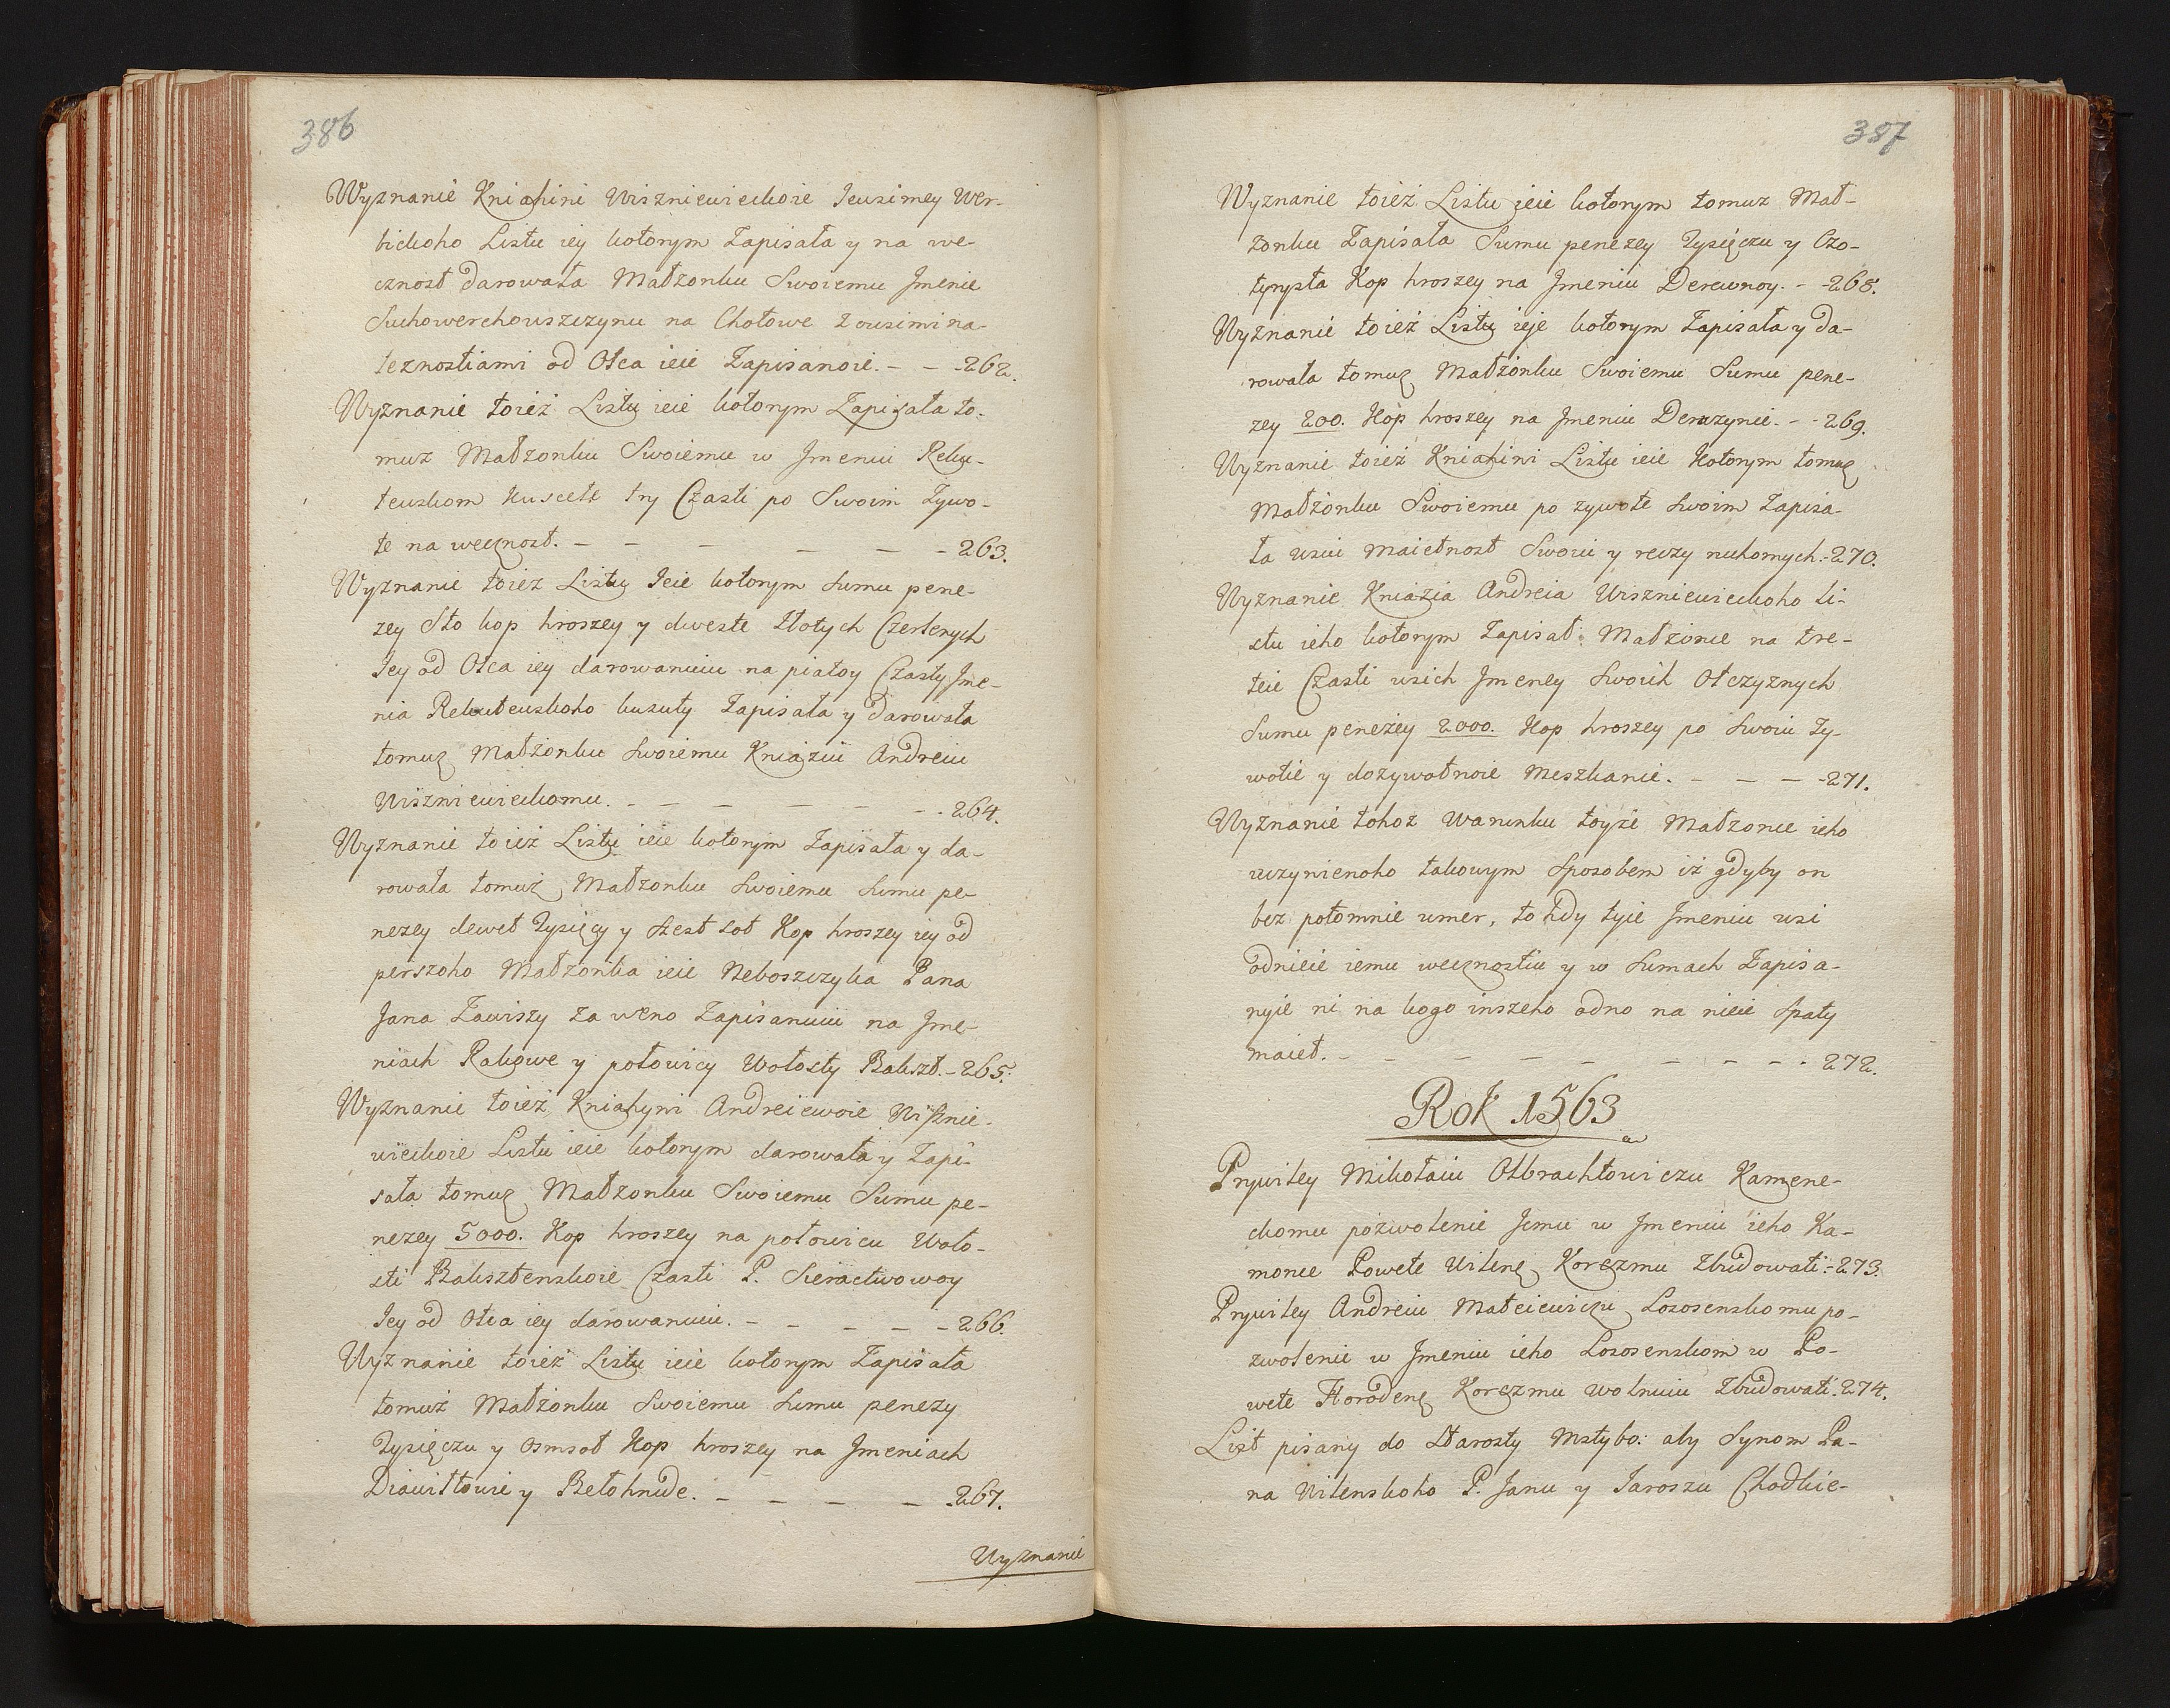 386
Wyznanie Kniahini Wiszniewieckoie Jeusimey Wer-
bickoho Listu iey kotorym Zapisała y na we-
cznost darowała Małzonku Swoiemu Jmenie
Suchowerchouszczynu na Chołowe Zousimi na-
leznostiami od Otca ieie Zapisanoie. - - - 262.
Wyznanie toież Listu ieie kotorym Zapisała to-
muz Małzonku Swoiemu w Jmeniu
try Czasti po Swoim Zywo-
te na wecznost. - - - - - - 263.
Wyznanie toież Listu Jeie kotorym Sumu pene-
zey Sto kop hroszey y dweste Złotych Czerlenych
Jey od Otca iey darowanuiu na piatoy Czasty Jme-
nia Zapisała y darowała
tomuz Małżonku Swoiemu Kniaziu Andreiu
Wiszniewieckomu. - - - - - - - 264.
Wyznanie toież Listu ieie kotorym Zapisała y da-
rowała tomuż Małzonku Swoiemu Sumu pe-
nezey dewet Tysięcy y szest sot Kop hroszey iey od
perszoho Małzonka ieie Neboszczyka Pana
Jana Zawiszy za weno Zapisanuiu na Jme-
niach Rakowe y połowicy Wołosty Bakszt. - 265.
Wyznanie toież Kniahyni Andreiewoie Wisznie-
wieckoie Listu ieie kotorym darowała y Zapi-
sała tomuz Małzonku Swoiemu Sumu pe-
nezey 5000. Kop hroszey na połowicu Woło-
sti Baksztenskoie Czasti P. Sieractwowoy
Jey od Otca iey darowanuiu. - - - - - 266.
Wyznanie toież Listu ieie kotorym Zapisała
tomuż Małżonku Swoiemu Sumu penezy
Tysięczu y osmsot Kop hroszey na Jmeniach
Diawiltowie y Bełohrude. - - - - 267.
Wyznanie
387
Wyznanie toież Listu ieie kotorym tomuz Mał-
zonku Zapisała Sumu penezey Tysięczu y Czo-
tyrysta Kop hroszey na Jmeniu Derewnoy. - - 268.
Wyznanie toież Listu ieje kotorym Zapisała y da-
rowała tomuz Małżonku Swoiemu Sumu pene-
zey 200. Kop hroszey na Jmeniu Derazynie. - - 269.
Wyznanie toież Kniahini Listu ieie Kotorym tomuz
Małżonku Swoiemu po zywote swoim Zapisa-
ła usiu maietnost Swoiu y reczy ruchomych. - 270.
Wyznanie Kniazia Andreia Wiszniewieckoho Li-
stu ieho kotorym Zapisał Małżonce na tre-
teie Czasti usich Jmeney Swoich Otczyznych
Sumu peneżey 2000. Kop hroszey po Swoiu Zy-
wotie y dozywotnoie Meszkanie. - - - - 271.
Wyznanie tohoz Warunku toyże Małzonce ieho
uczynienoho takowym Sposobem iż gdyby on
bez potomnie umer, tohdy tyie Jmeniu usi
odnieie iemu wecznostiu y w Sumach Zapisa-
nyie ni na kogo inszeho odno na nieie Spaty
maiet. - - - - - - - - - 272.
Rok 1563
Prywiley Mikołaiu Olbrachtowiczu Kamene-
ckomu pozwolenie Jemu w Jmeniu ieho Ka-
monce Powete Wilen: Korczmu Zbudowati. - 273.
Prywiley Andreiu Matieiewiczu Lososenskomu po-
zwolenie w Jmeniu ieho Lososenskom w Po-
wete Horoden: Korczmu wolnuiu Zbudowati. 274.
List pisany do Starosty Mstybo: aby Synom Pa-
na Wilenskoho P. Janu y Jaroszu Chodkie-